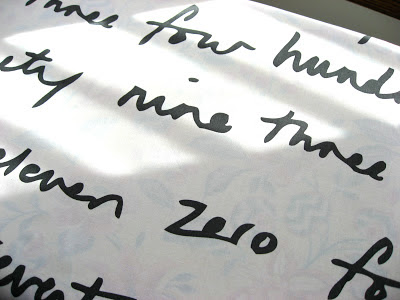 hree four hund
ety nine three
eleven zero fo
event